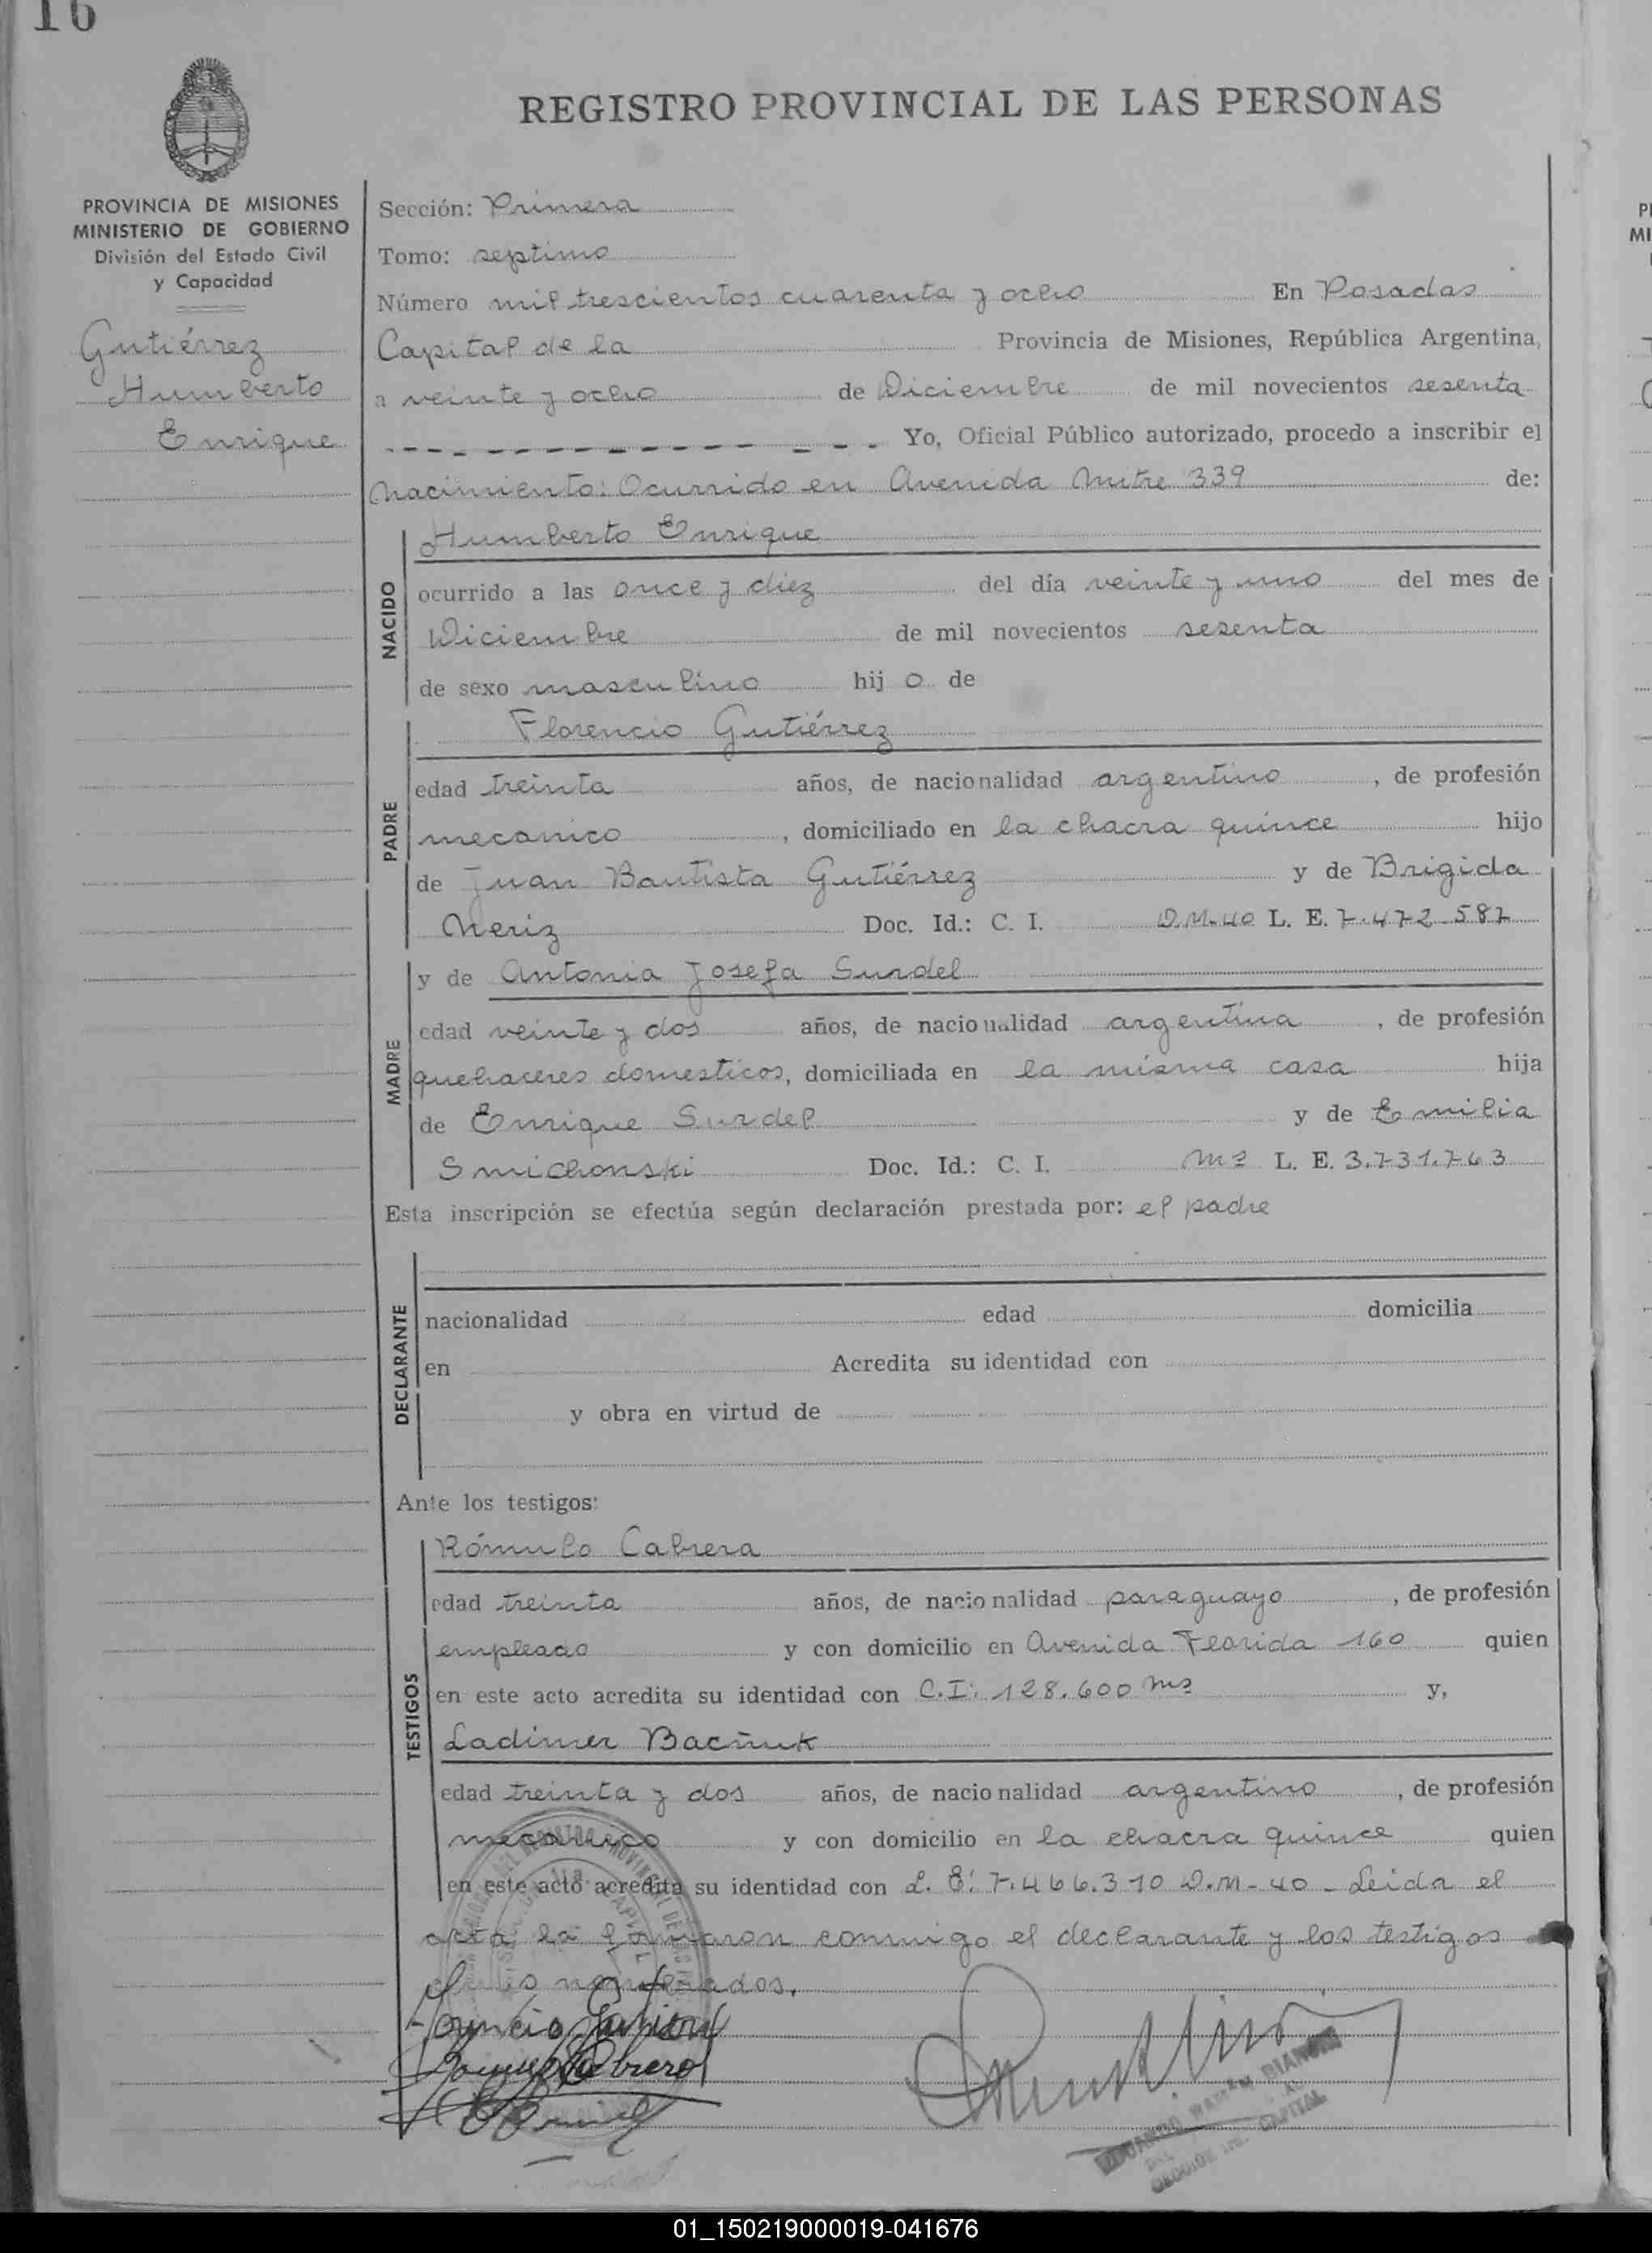 16
REGISTRO PROVINCIAL DE LAS PERSONAS
PROVINCIA DE MISIONES
MINISTERIO DE GOBIERNO
División del Estado Civil
y Capacidad
Gutiérrez
Humberto
Enrique
Sección: Primera
Tomo: septimo
Número mil trescientos cuarenta y ocho En Posadas
Capital de la Provincia de Misiones, República Argentina,
a veinte y ocho de Diciembre de mil novecientos sesenta
Yo, Oficial Público autorizado, procedo a inscribir el
nacimiento: Ocurrido en Avenida Mitre 339 de:
NACIDO
Humberto Enrique
ocurrido a las once y diez del día veinte y uno del mes de
Diciembre de mil novecientos sesenta
de sexo masculino hij o de
PADRE
Florencio Gutiérrez
edad treinta años, de nacionalidad argentino, de profesión
mecanico, domiciliado en la chacra quince hijo
de Juan Bautista Gutiérrez y de Brigida
Neriz Doc. Id.: C. I. D.M.40 L. E. 7.472.587
MADRE
y de Antonia Josefa Surdel
edad veinte y dos años, de nacionalidad argentina, de profesión
quehaceres domesticos, domiciliada en la misma casa hija
de Enrique Surdel y de Emilia
Smichonski Doc. Id.: C. I. Ms L. E. 3.731.763
Esta inscripción se efectúa según declaración prestada por: el padre
DECLARANTE
nacionalidad edad domicilia
en Acredita su identidad con
y obra en virtud de
Ante los testigos:
TESTIGOS
Rómulo Cabrera
edad treinta años, de nacionalidad paraguayo, de profesión
empleado y con domicilio en Avenida Florida 160 quien
en este acto acredita su identidad con C.I: 128.600 Ms y,
Ladimer Bacñuk
edad treinta y dos años, de nacionalidad argentino, de profesión
mecanico y con domicilio en la chacra quince quien
en este acto acredita su identidad con L. E: 7.466.310 D.M-40 - Leida el
acta la firmaron conmigo el declarante y los testigos
nombrados.
CAPITAL
01_150219000019-041676